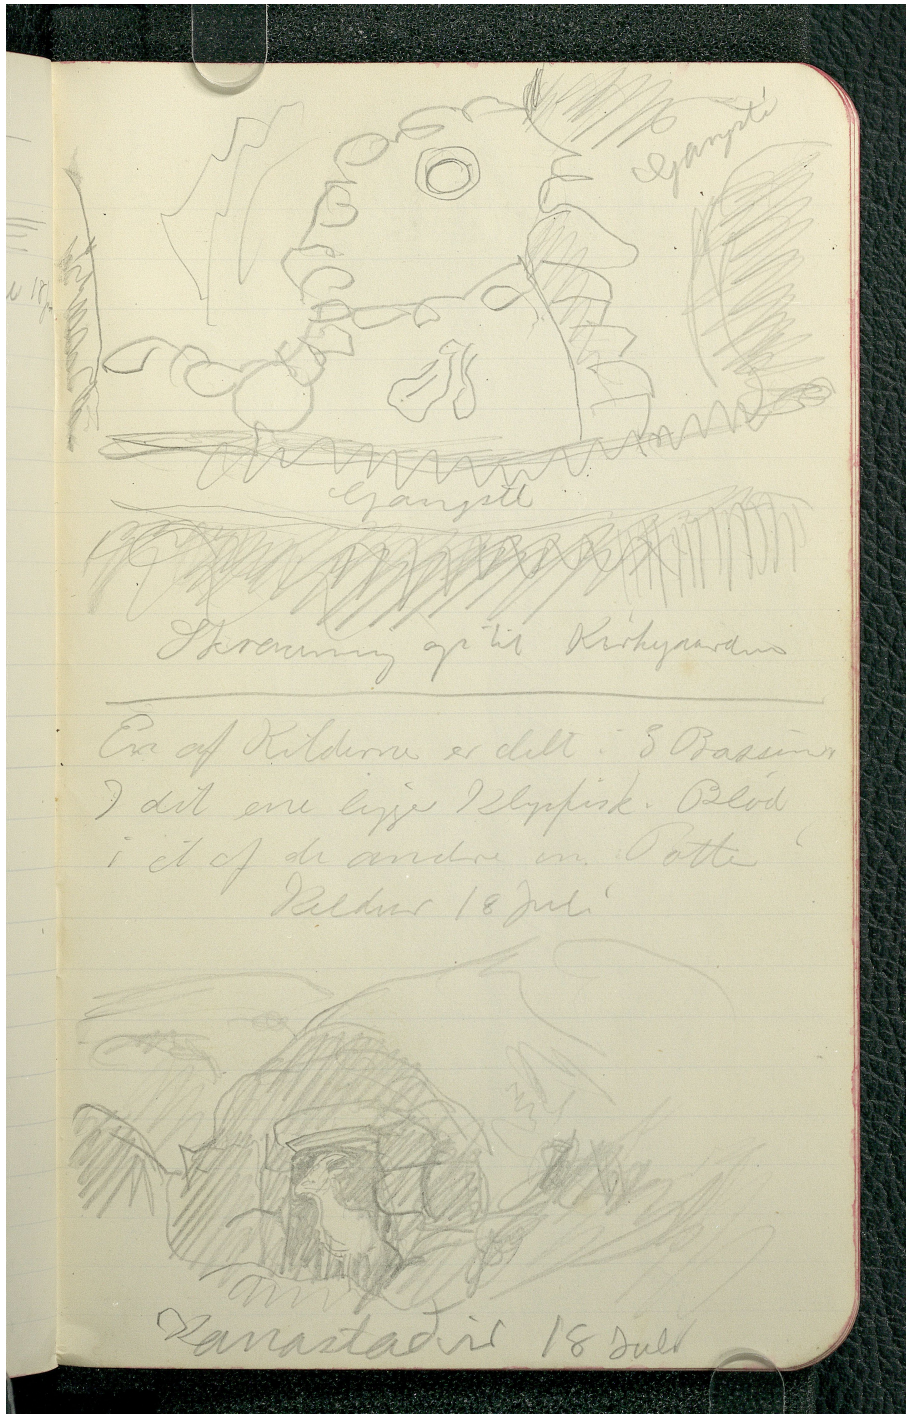 Gangsti
Gangsti
Skraaning op til Kirkegaarden
En af Kilderne er delt i 3 Bassiner
I det ene ligge Klipfisk i Blød
i et af de andre en Potte
Keldur 18 Juli
Kanastaðir 18 Juli